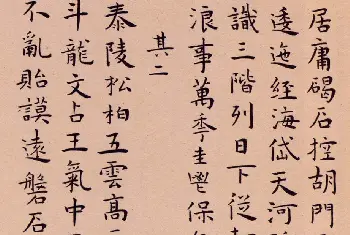 居庸碣石控胡門
逶迤經海岱天河
識三階列日下從
浪事萬季圭鬯保
其二
泰陵松柏五雲高
斗龍文占王氣中
不亂貽謨遠磐石